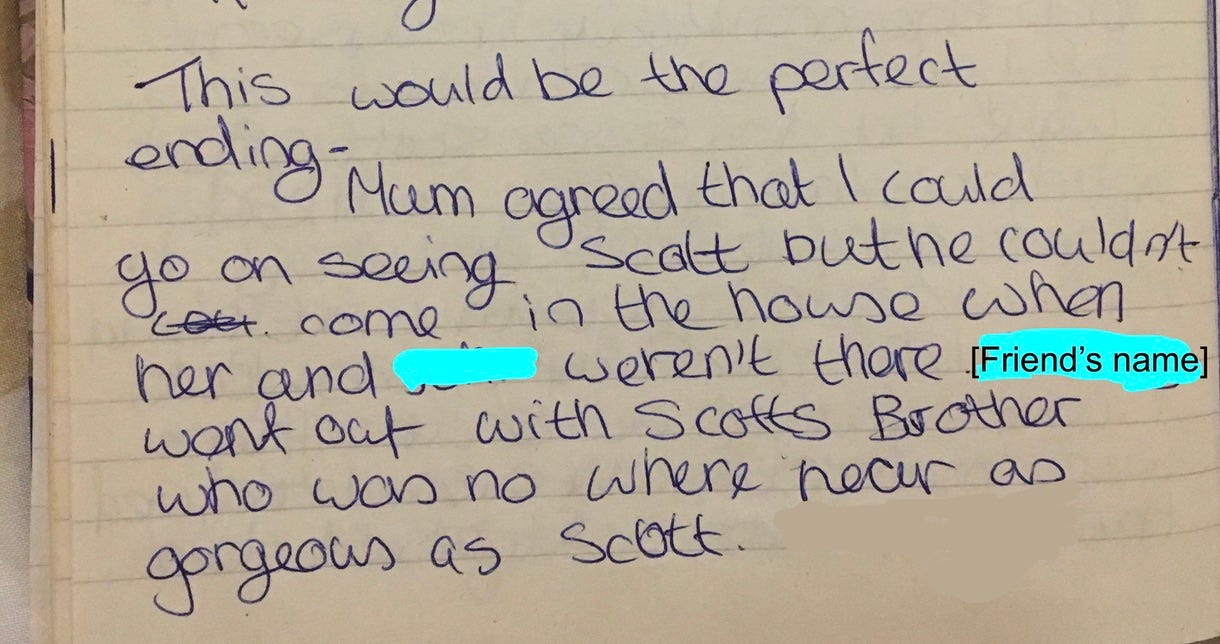 This would be the perfect
ending-
Mum agreed that I could
go on seeing Scott but he couldn't
come in the house when
her and weren't there [Friend's name]
went out with Scotts Brother
who was no where near as
gorgeous as Scott.